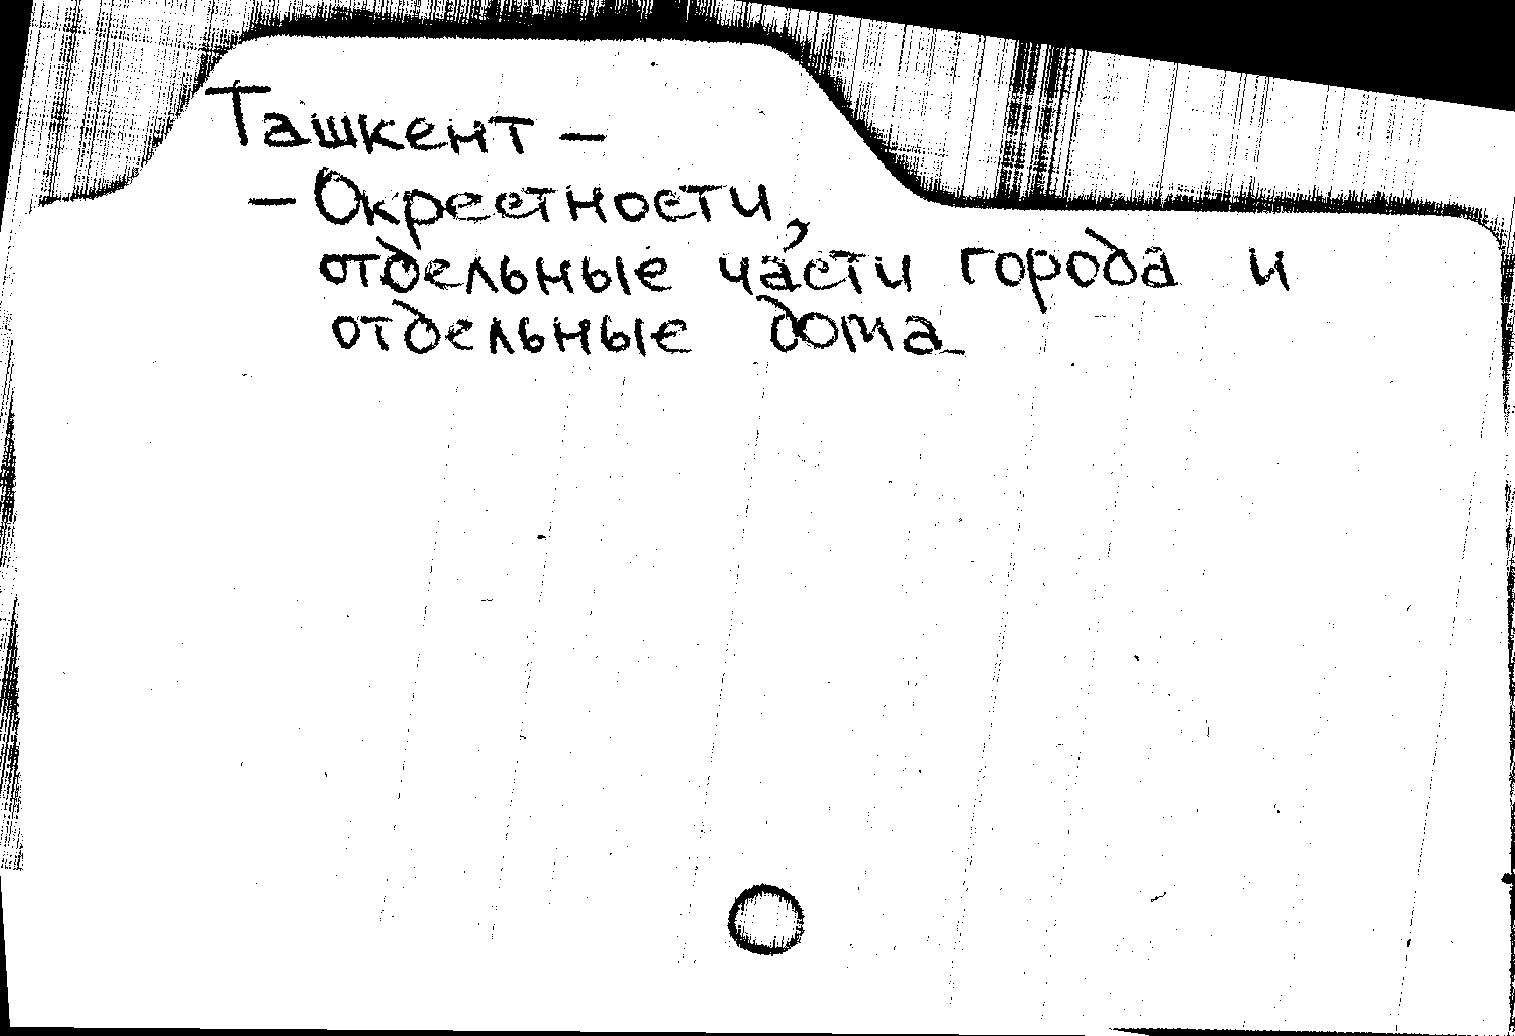 Ташкент –
– Окрестности,
отдельные части города и
отдельные дома